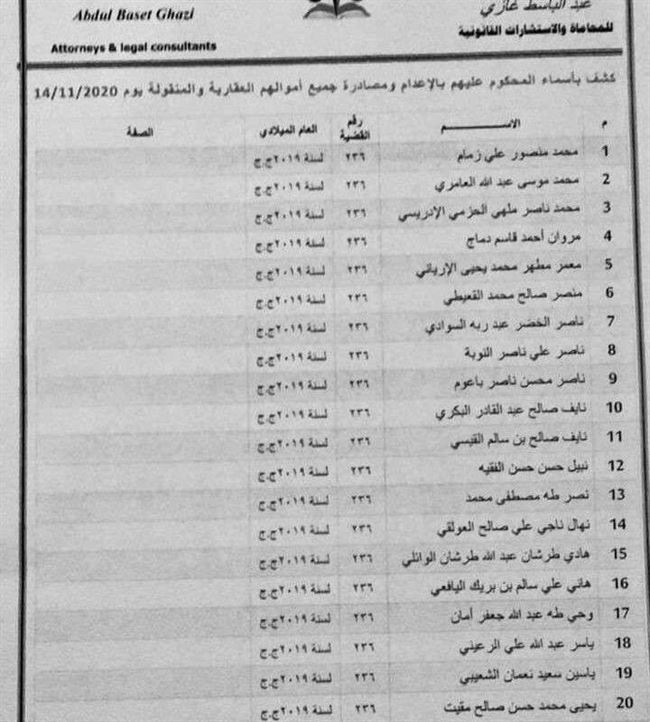 عبد الباسط غازي
Abdul Baset Ghazi
للمحاماة والاستشارات القانونية
Attorneys & legal consultants
كشف بأسماء المحكوم عليهم بالإعدام ومصادرة جميع أموالهم العقارية والمنقولة يوم 14/11/2020
م الاســـــــم رقم القضية العام الميلادي الصفة
1 محمد منصور علي زمام ٢٣٦ لسنة ٢٠١٩ج.ج
2 محمد موسى عبد الله العامري ٢٣٦ لسنة ٢٠١٩ج.ج
3 محمد ناصر ملهي الحزمي الإدريسي ٢٣٦ لسنة ٢٠١٩ج.ج
4 مروان أحمد قاسم دماج ٢٣٦ لسنة ٢٠١٩ج.ج
5 معمر مطهر محمد يحيى الإرياني ٢٣٦ لسنة ٢٠١٩ج.ج
6 منصر صالح محمد القعيطي ٢٣٦ لسنة ٢٠١٩ج.ج
7 ناصر الخضر عبد ربه السوادي ٢٣٦ لسنة ٢٠١٩ج.ج
8 ناصر علي ناصر النوبة ٢٣٦ لسنة ٢٠١٩ج.ج
9 ناصر محسن ناصر باعوم ٢٣٦ لسنة ٢٠١٩ج.ج
10 نايف صالح عبد القادر البكري ٢٣٦ لسنة ٢٠١٩ج.ج
11 نايف صالح بن سالم القيسي ٢٣٦ لسنة ٢٠١٩ج.ج
12 نبيل حسن حسن الفقيه ٢٣٦ لسنة ٢٠١٩ج.ج
13 نصر طه مصطفى محمد ٢٣٦ لسنة ٢٠١٩ج.ج
14 نهال ناجي علي صالح العولقي ٢٣٦ لسنة ٢٠١٩ج.ج
15 هادي طرشان عبد الله طرشان الوائلي ٢٣٦ لسنة ٢٠١٩ج.ج
16 هاني علي سالم بن بريك اليافعي ٢٣٦ لسنة ٢٠١٩ج.ج
17 وحي طه عبد الله جعفر أمان ٢٣٦ لسنة ٢٠١٩ج.ج
18 ياسر عبد الله علي الرعيني ٢٣٦ لسنة ٢٠١٩ج.ج
19 ياسين سعيد نعمان الشعيبي ٢٣٦ لسنة ٢٠١٩ج.ج
20 يحيى محمد حسن صالح مقيت ٢٣٦ لسنة ٢٠١٩ج.ج